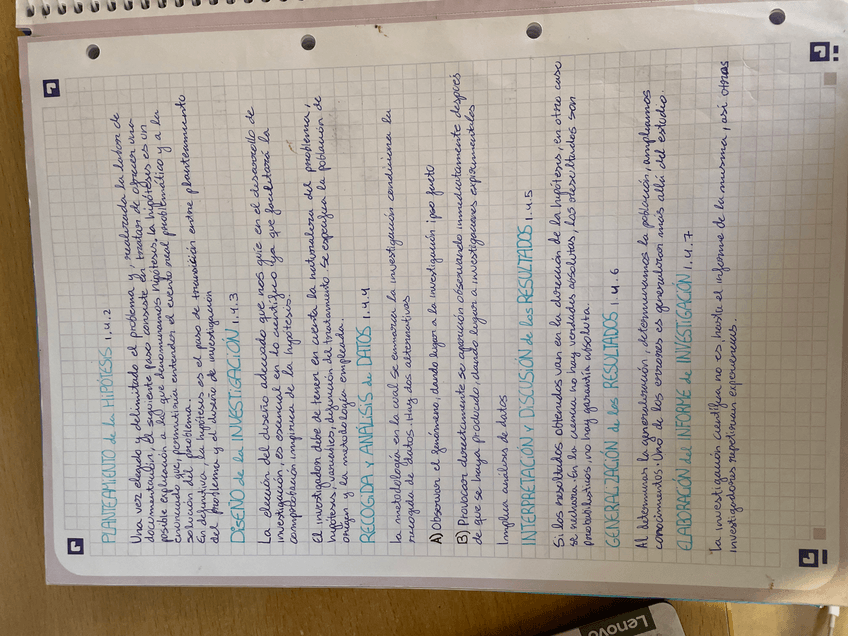 PLANTEAMIENTO de la HIPÓTESIS 1.4.2
Una vez elegido y delimitado el problema y, realizada la labor de
documentación, el siguiente paso consiste en tratar de ofrecer una
posible explicación a lo que denominamos hipótesis, la hipótesis es un
enunciado que, permitiría entender el evento real problemático y a la
solución del problema.
En definitiva, la hipótesis es el paso de transición entre planteamiento
del problema y el diseño de investigación
DISEÑO de la INVESTIGACIÓN 1.4.3
La elección del diseño adecuado que nos guíe en el desarrollo de
investigación, es esencial en lo científico ya que facilitará la
comprobación empírica de la hipótesis.
El investigador debe de tener en cuenta la naturaleza del problema,
hipótesis, variables, definición del tratamiento. Se especifica la población de
origen y la metodología empleada.
RECOGIDA y ANÁLISIS de DATOS 1.4.4
La metodología en la cual se enmarca la investigación condiciona la
recogida de datos. Hay dos alternativas
A) Observar el fenómeno, dando lugar a la investigación ipso facto
B) Provocar directamente su aparición observando inmediatamente después
de que se haya producido, dando lugar a investigaciones experimentales
Implica análisis de datos
INTERPRETACIÓN y DISCUSIÓN de los RESULTADOS 1.4.5
Si los resultados obtenidos van en la dirección de la hipótesis, en otro caso
se rechaza. En la ciencia no hay verdades absolutas, los resultados son
probabilísticos, no hay garantía absoluta.
GENERALIZACIÓN de los RESULTADOS 1.4.6
Al determinar la generalización, determinamos la población, ampliamos
conocimientos. Uno de los errores es generalizar más allá del estudio.
ELABORACIÓN del INFORME de INVESTIGACIÓN 1.4.7
La investigación científica no es hasta el informe de la misma, así otros
investigadores repetirían experiencias.
Lenovo